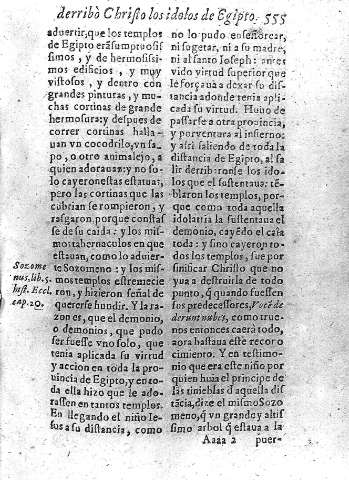 derribò Christo los idolos de Egipto. 555
aduertir, que los templos
de Egipto erã sumptuosis
simos, y de hermosissi
mos edificios, y muy
vistosos, y dentro con
grandes pinturas, y mu
chas cortinas de grande
hermosura: y despues de
correr cortinas halla-
uan vn cocodrilo, vn sa
po, o otro animalejo, a
quien adorauan: y no so
lo cayeron estas estatuas,
pero las cortinas que las
cubrian se rompieron, y
rasgaron porque constas
se de su caida: y los mis
mos tabernaculos en que
estauan, como lo aduier
te Sozomeno: y los mis
mos templos estremecie
ron, y hizieron señal de
quererse hundir. Y la ra
zon es, que el demonio,
o demonios, que pudo
ser fuesse vno solo, que
tenia aplicada su virtud
y accion en toda la pro
uincia de Egipto, y en to
da ella hizo que le ado-
rassen en tantos templos.
En llegando el niño Ie-
sus a su distancia, como
Sozome
nus, lib. 5.
hist. Eccl.
cap. 20.
no lo pudo enseñorear,
ni sugetar, ni a su madre,
ni al santo Ioseph: antes
vido virtud superior que
le forçaua a dexar su dis
tancia adonde tenia apli
cada su virtud. Huuo de
passarse a otra prouincia,
y por ventura al infierno:
y assi saliendo de toda la
distancia de Egipto, al sa
lir derribaronse los ido
los que el sustentaua: tẽ-
blaron los templos, por-
que como toda aquella
idolatria la sustentaua el
demonio, cayẽdo el caia
toda: y sino cayeron to-
dos los templos, fue por
sinificar Christo que no
yua a destruirla de todo
punto, ã quando fuessen
los predecessores, Vocẽ de
derunt nubes, como true-
nos entonces caerà todo,
aora bastaua este recoro
cimiento. Y en testimo-
nio que era este niño por
quien huia el principe de
las tinieblas d'aquella dis
tãcia, dize el mismo Sozo
meno, q̃ vn grande y altis
simo arbol q̃ estaua a la
Aaaa 2 puer-